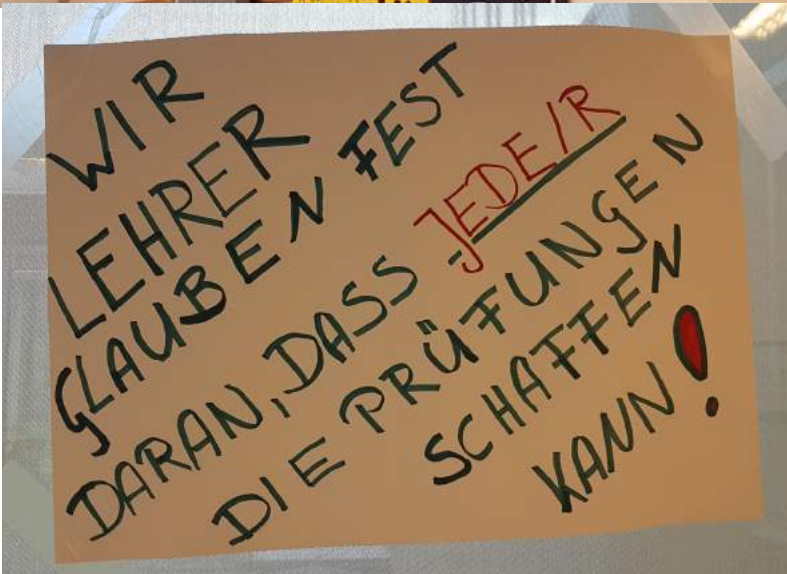 WIR
LEHRER
GLAUBEN FEST
DARAN, DASS JEDE/R
DIE PRÜFUNGEN
SCHAFFEN
KANN!